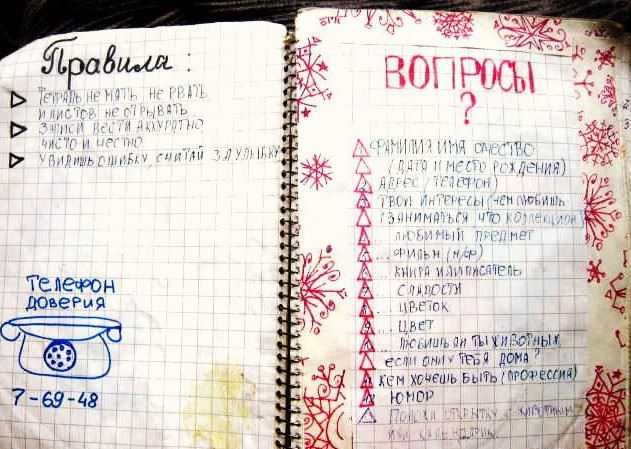 Правила:
Тетрадь не мять, не рвать
и листов не отрывать
Записи вести аккуратно
чисто и честно
Увидишь ошибку, считай за улыбку
Телефон
доверия
7-69-48
ВОПРОСЫ
?
Фамилия имя
(дата и место рождения)
Адрес (телефон)
Твои интересы (чем любишь
заниматься что
... любимый предмет
... фильм (м/ф)
... книга или писатель
сладости
... цветок
... цвет
... любишь ли ты животных,
если они у тебя дома?
Кем хочешь быть (профессия)
Юмор
открытку
или календарик